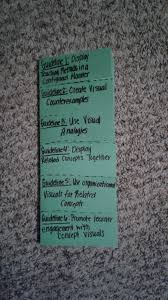 Guideline 1: Display
Teaching Methods in a
Contiguous Manner
Guideline 2: Create Visual
Counterexamples
Guideline 3: Use Visual
Analogies
Guideline 4: Display
Related Concepts Together
Guideline 5: Use organizational
Visuals for Related
Concepts
Guideline 6: Promote learner
engagement with
Concept Visuals